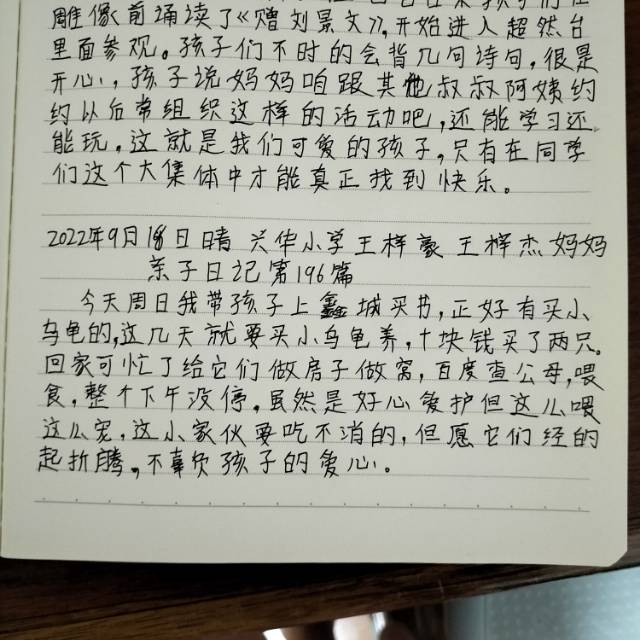 雕像前诵读了《赠刘景文》,开始进入超然台
里面参观。孩子们不时的会背几句诗句,很是
开心,孩子说妈妈咱跟其他叔叔阿姨约
约以后常组织这样的活动吧,还能学习还
能玩。这就是我们可爱的孩子,只有在同学
们这个大集体中才能真正找到快乐。
2022年9月18日晴 兴华小学王梓豪 王梓杰妈妈
亲子日记第196篇
今天周日我带孩子上鑫城买书,正好有买小
乌龟的,这几天就要买小乌龟养,十块钱买了两只。
回家可忙了给它们做房子做窝,百度查公母,喂
食,整个下午没停。虽然是好心爱护但这么喂
这么宠,这小家伙要吃不消的,但愿它们经的
起折腾,不辜负孩子的爱心。